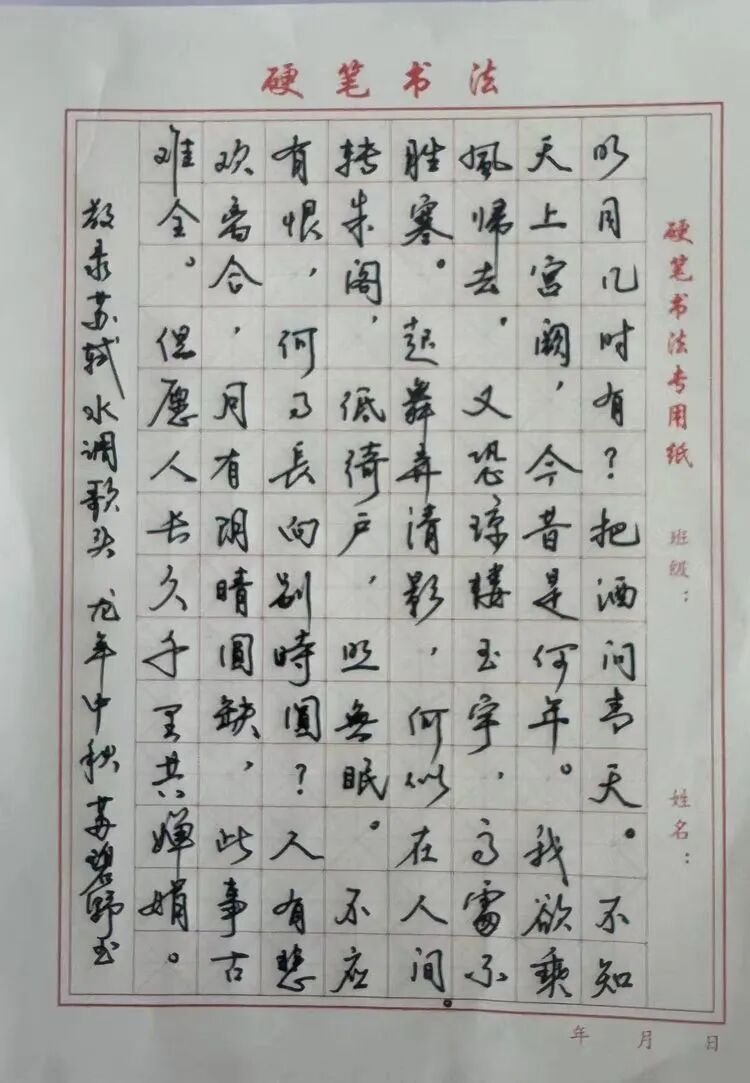 硬笔书法
明月几时有？把酒问青天。不知
天上宫阙，今昔是何年。我欲乘
風归去。又恐琼楼玉宇，高處不
胜寒。起舞弄清影，何似在人间
转朱阁，低绮户，照無眠。不应
有恨，何事長向别時圓？人有悲
欢离合，月有阴晴圓缺，此事古
难全。但愿人长久千里共婵娟。
敬录苏轼水调歌头 龙年中秋 苏碧野书
硬笔书法专用纸 班级： 姓名：
年 月 日